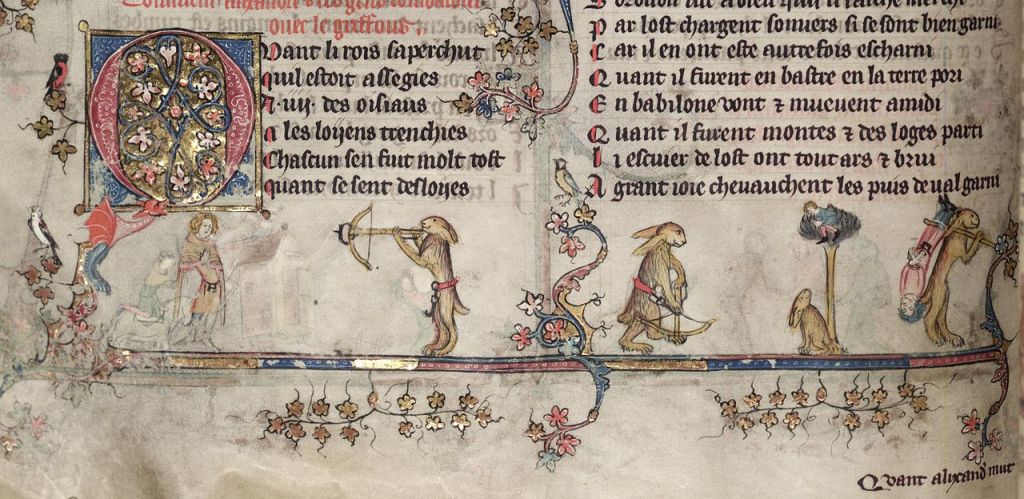 Comment alixandre & les gens
oner le griffons :
Quant li rois saperchut
quil estoit assegies
des oisiaus
a les loijens trenchies
Chascun sen fuit molt tost
quant se sent desloijes
Par lost chargent somiers si se sont bien garni
Car il en ont este autrefois escharni
Quant il furent en bastre en la terre
En babilone vont ⁊ mueuent amidi
Quant il furent montes ⁊ des loges parti
Li escuier de lost ont tout ars ⁊ brui
A grant ioie cheuauchent les puis de ual garni
Quant alixand mut